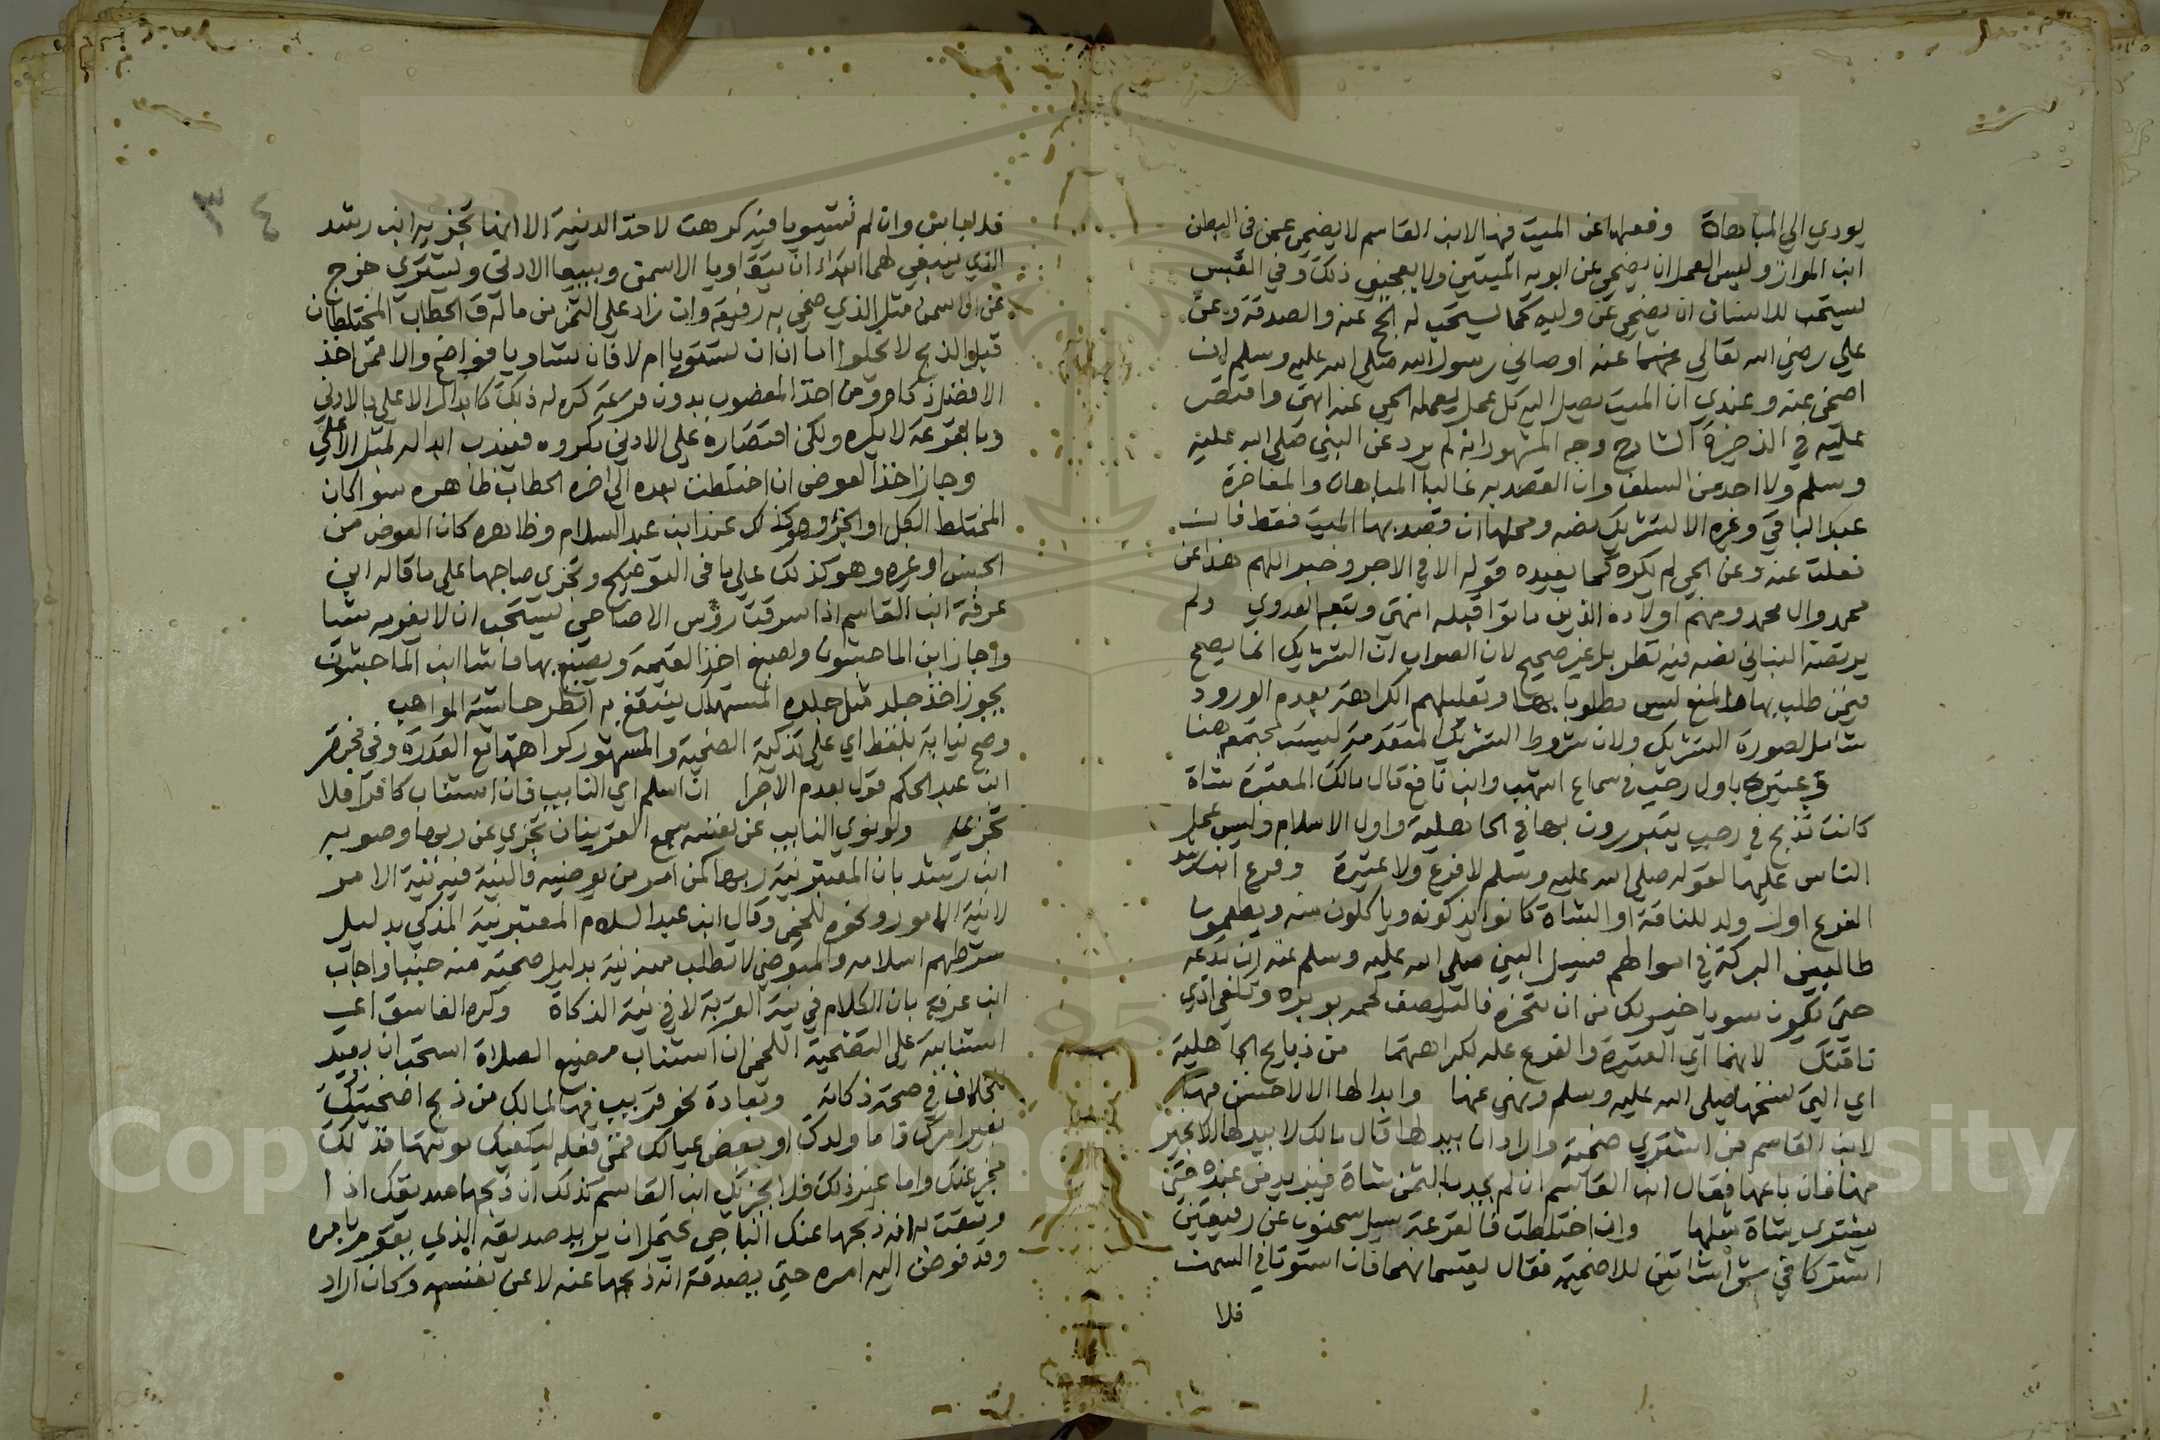 يودي الي المباهاة وفعلها عن الميت فيها لابن القاسم لا يضحي عمن في البطن
ابن المواز وليس العمل ان يضحي عن ابويه الميتين ولا يعجبني ذلك وفي القبس
يستحب للانسان ان يضحي عن وليه كما يستحب له الحج عنه والصدقة وعن
علي رضي الله تعالي عنه اوصاني رسول الله صلي الله عليه وسلم ان
اضحي عنه وعندي ان الميت يصل اليه كل عمل يعمله الحي عنه انتهي واقتصر
عليه في الذخيرة الشارح وجه المشهور انه لم يرد عن النبي صلي الله عليه
وسلم ولا احد من السلف وان القصد به غالبا المباهاة والمفاخرة
عبد الباقي وغيره الا لتشريك نصه ومحلها ان قصد بها الميت فقط فان
فعلت عنه وعن الحي لم يكره كما يفيده قوله الا في الاجر وخبر اللهم هذا عن
محمد وال محمد ومنهم اولاده الذين ماتوا قبله انتهي وتبعه العدوي ولم
يرتضه البناني نصه فيه نظر بل غير صحيح لان الصواب ان التشريك انما يصح
فيمن طلب بها والمنع ليس مطلوبا بها وتعليلهم الكراهة بعدم الورود
شامل لصورة التشريك ولان شروط التشريك المتقدمة ليست مجتمعة هنا
وعتيرة باول رجب في سماع اشهب وابن نافع قال مالك العتيرة شاة
كانت تذبح في رجب يتبررون بها في الجاهلية واول الاسلام وليس عمل
الناس عليها لقوله صلي الله عليه وسلم لا فرع ولا عتيرة وفرع ابن رشد
الفرع اول ولد للناقة او الشاة كانوا يذكونه وياكلون منه ويطعمون
طالبين البركة في اموالهم فسئل النبي صلي الله عليه وسلم عنه ان تدعه
حتي يكون سويا خير لك من ان تنحره فالتيلصق لحمه بوبره وتكفي اذي
ناقتك لانهما اي العتيرة والفرع علة لكراهتهما من ذبايح الجاهلية
اي التي نسخها صلي الله عليه وسلم ونهي عنها وابدالها الا لاحسن منها
لابن القاسم من اشتري ضحية واراد ان يبدلها قال مالك لا يبدلها الا بخير
منها فان باعها فقال ابن القاسم ان لم يجد بالثمن شاة فيزيد من عنده حتي
يشتري شاة مثلها وان اختلطت فالقرعة سيل سحنون عن رفيقين
اشتركا في شرا شاتين للاضحية فقال يقتسمانهما فان استوتا في السمن
فلا
٣٤
فلا باس وان لم تستويا فيه كرهت لاخذ الدنية الا انها تجزيه ابن رشد
الذي ينبغي لهما ابتداء ان يتقاويا الاسمن ويبيع الادني ويشتري
عن الاسمن مثل الذي ضحي به رفيقه وان زاد علي الثمن من ماله الحطاب المختلطتان
قبل الذبح لا يخلوا اما ان تستويا ام لا فان تساويا فواضح والا فمن اخذ
الافضل ذكاه ومن اخذ المفضول بدون قرعة كره له ذلك كابدال الاعلي بالادني
وبالقرعة لا يكره ولكن اقتصاره علي الادني مكروه فيندب ابداله بمثل الاعلي
وجاز اخذ العوض ان اختلطت بعده الي اخره الحطاب ظاهره سوا كان
المختلط الكل او الجزء وهو كذلك عند ابن عبد السلام وظاهره كان العوض من
الجنس او غيره وهو كذلك علي ما في التوضيح وتجزي صاحبها علي ما قاله ابن
عرفة ابن القاسم اذا سرقت رؤس الاضاحي يستحب ان لا يغرمه شيا
واجاز ابن الماجشون واصبغ اخذ القيمة ويصنع بها ما شا ابن الماجشون
يجوز اخذ جلد مثل جلده المستهلك ينتفع به انظر حاشية المواهب
وصح نيابة بلفظ اي علي تذكية الضحية والمشهور كراهتها مع القدرة وفي مختصر
ابن عبد الحكم قول بعدم الاجزا ان اسلم اي النايب فان استناب كافرا فلا
تجزيه ولو نوي النايب عن نفسه سمع القرينان تجزي عن ربها وصوبه
ابن رشد بان المعتبر نية ربها كمن امر من يوضيه فالنية فيه نية الامر
لا نية المامور ونحوه للخمي وقال ابن عبد السلام المعتبر نية المذكي بدليل
شرطهم اسلامه والموضي لا تطلب منه نية بدليل صحته منه جنبا واجاب
ابن عرفة بان الكلام في نية القربة لا في نية الذكاة وكره الفاسق اي
استنابته علي التضحية اللخمي ان استناب مضيع الصلاة استحب ان يعيد
للخلاف في صحة ذكاته وبعادة كقريب فيها لمالك من ذبح اضحيتك
بغير امرك فاما ولدك او بعض عيالك فمن فعله ليكفيك مونتها فذلك
مجز عنك واما غير ذلك فلا يجزيك ابن القاسم كذلك ان ذبحها صديقك اذا
وثقت به انه ذبحها عنك الباجي يحتمل ان يريد صديقه الذي يقوم بامره
وقد فوض اليه امره حتي يصدقه انه ذبحها عنه لا عن نفسه وكان اراد
Copyright © King Saud University